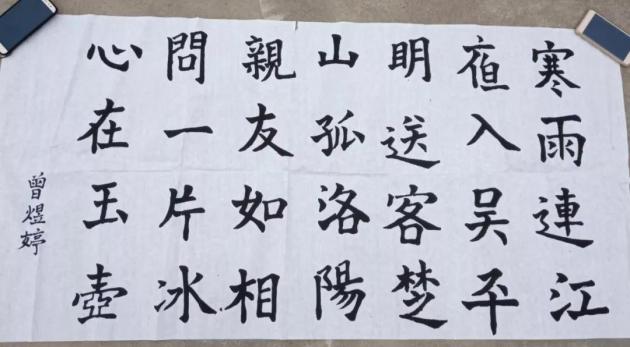 寒雨連江
夜入吴平
明送客楚
山孤洛陽
親友如相
問一片冰
心在玉壺
曾煜婷